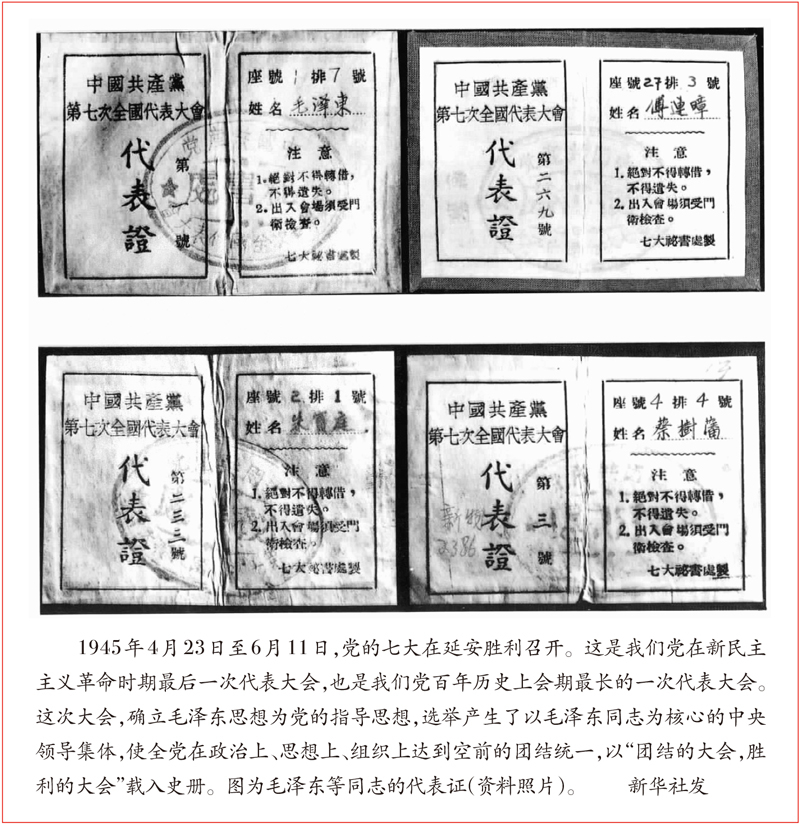 中國共產黨
第七次全國代表大會
代表證
第一號
座號1排7號
姓名 毛澤東
注意
1.絕對不得轉借，
不得遺失。
2.出入會場須受門
衛檢查。
七大祕書處製
中國共產黨
第七次全國代表大會
代表證
第二六九號
座號27排3號
姓名 傅連暲
注意
1.絕對不得轉借，
不得遺失。
2.出入會場須受門
衛檢查。
七大祕書處製
中國共產黨
第七次全國代表大會
代表證
第二三三號
座號2排1號
姓名 朱寶庭
注意
1.絕對不得轉借，
不得遺失。
2.出入會場須受門
衛檢查。
七大祕書處製
中國共產黨
第七次全國代表大會
代表證
第三號
座號4排4號
姓名 蔡樹藩
注意
1.絕對不得轉借，
不得遺失。
2.出入會場須受門
衛檢查。
七大祕書處製
3386
1945年4月23日至6月11日，党的七大在延安胜利召开。这是我们党在新民主
主义革命时期最后一次代表大会，也是我们党百年历史上会期最长的一次代表大会。
这次大会，确立毛泽东思想为党的指导思想，选举产生了以毛泽东同志为核心的中央
领导集体，使全党在政治上、思想上、组织上达到空前的团结统一，以“团结的大会，胜
利的大会”载入史册。图为毛泽东等同志的代表证（资料照片）。 新华社发